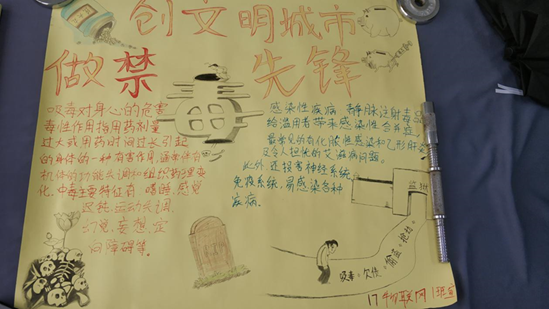 创文明城市
做禁 先锋
吸毒对身心的危害
毒性作用指用药剂量
过大或用药时间过长引起
的身体的一种有害作用,通常伴有
机体的功能失调和组织病理变
化。中毒主要特征有 嗜睡 感觉
迟钝、运动失调、
幻觉、妄想、定
向障碍等。
感染性疾病 静脉注射毒
给滥用者带来感染性合并症
最常见的有化脓性感染和乙形肝
及令人担忧的艾滋病问题。
此外,还损害神经系统
免疫系统,易感染各种
疾病。
吸毒。欠债。偷盗。抢劫。
17物联网1班